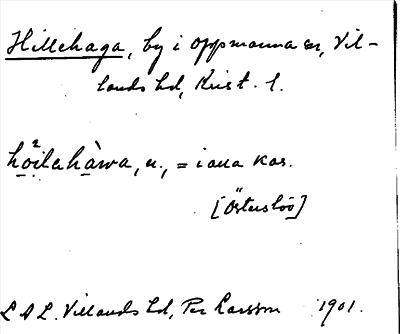 Hillehaga, by i Oppmanna sn, Vil-
lands hd, Krist. l.
ho²ilahàwa, n., = i alla kas.
[Österslöv]
L A L. Villands hd, Per Larsson 1901.